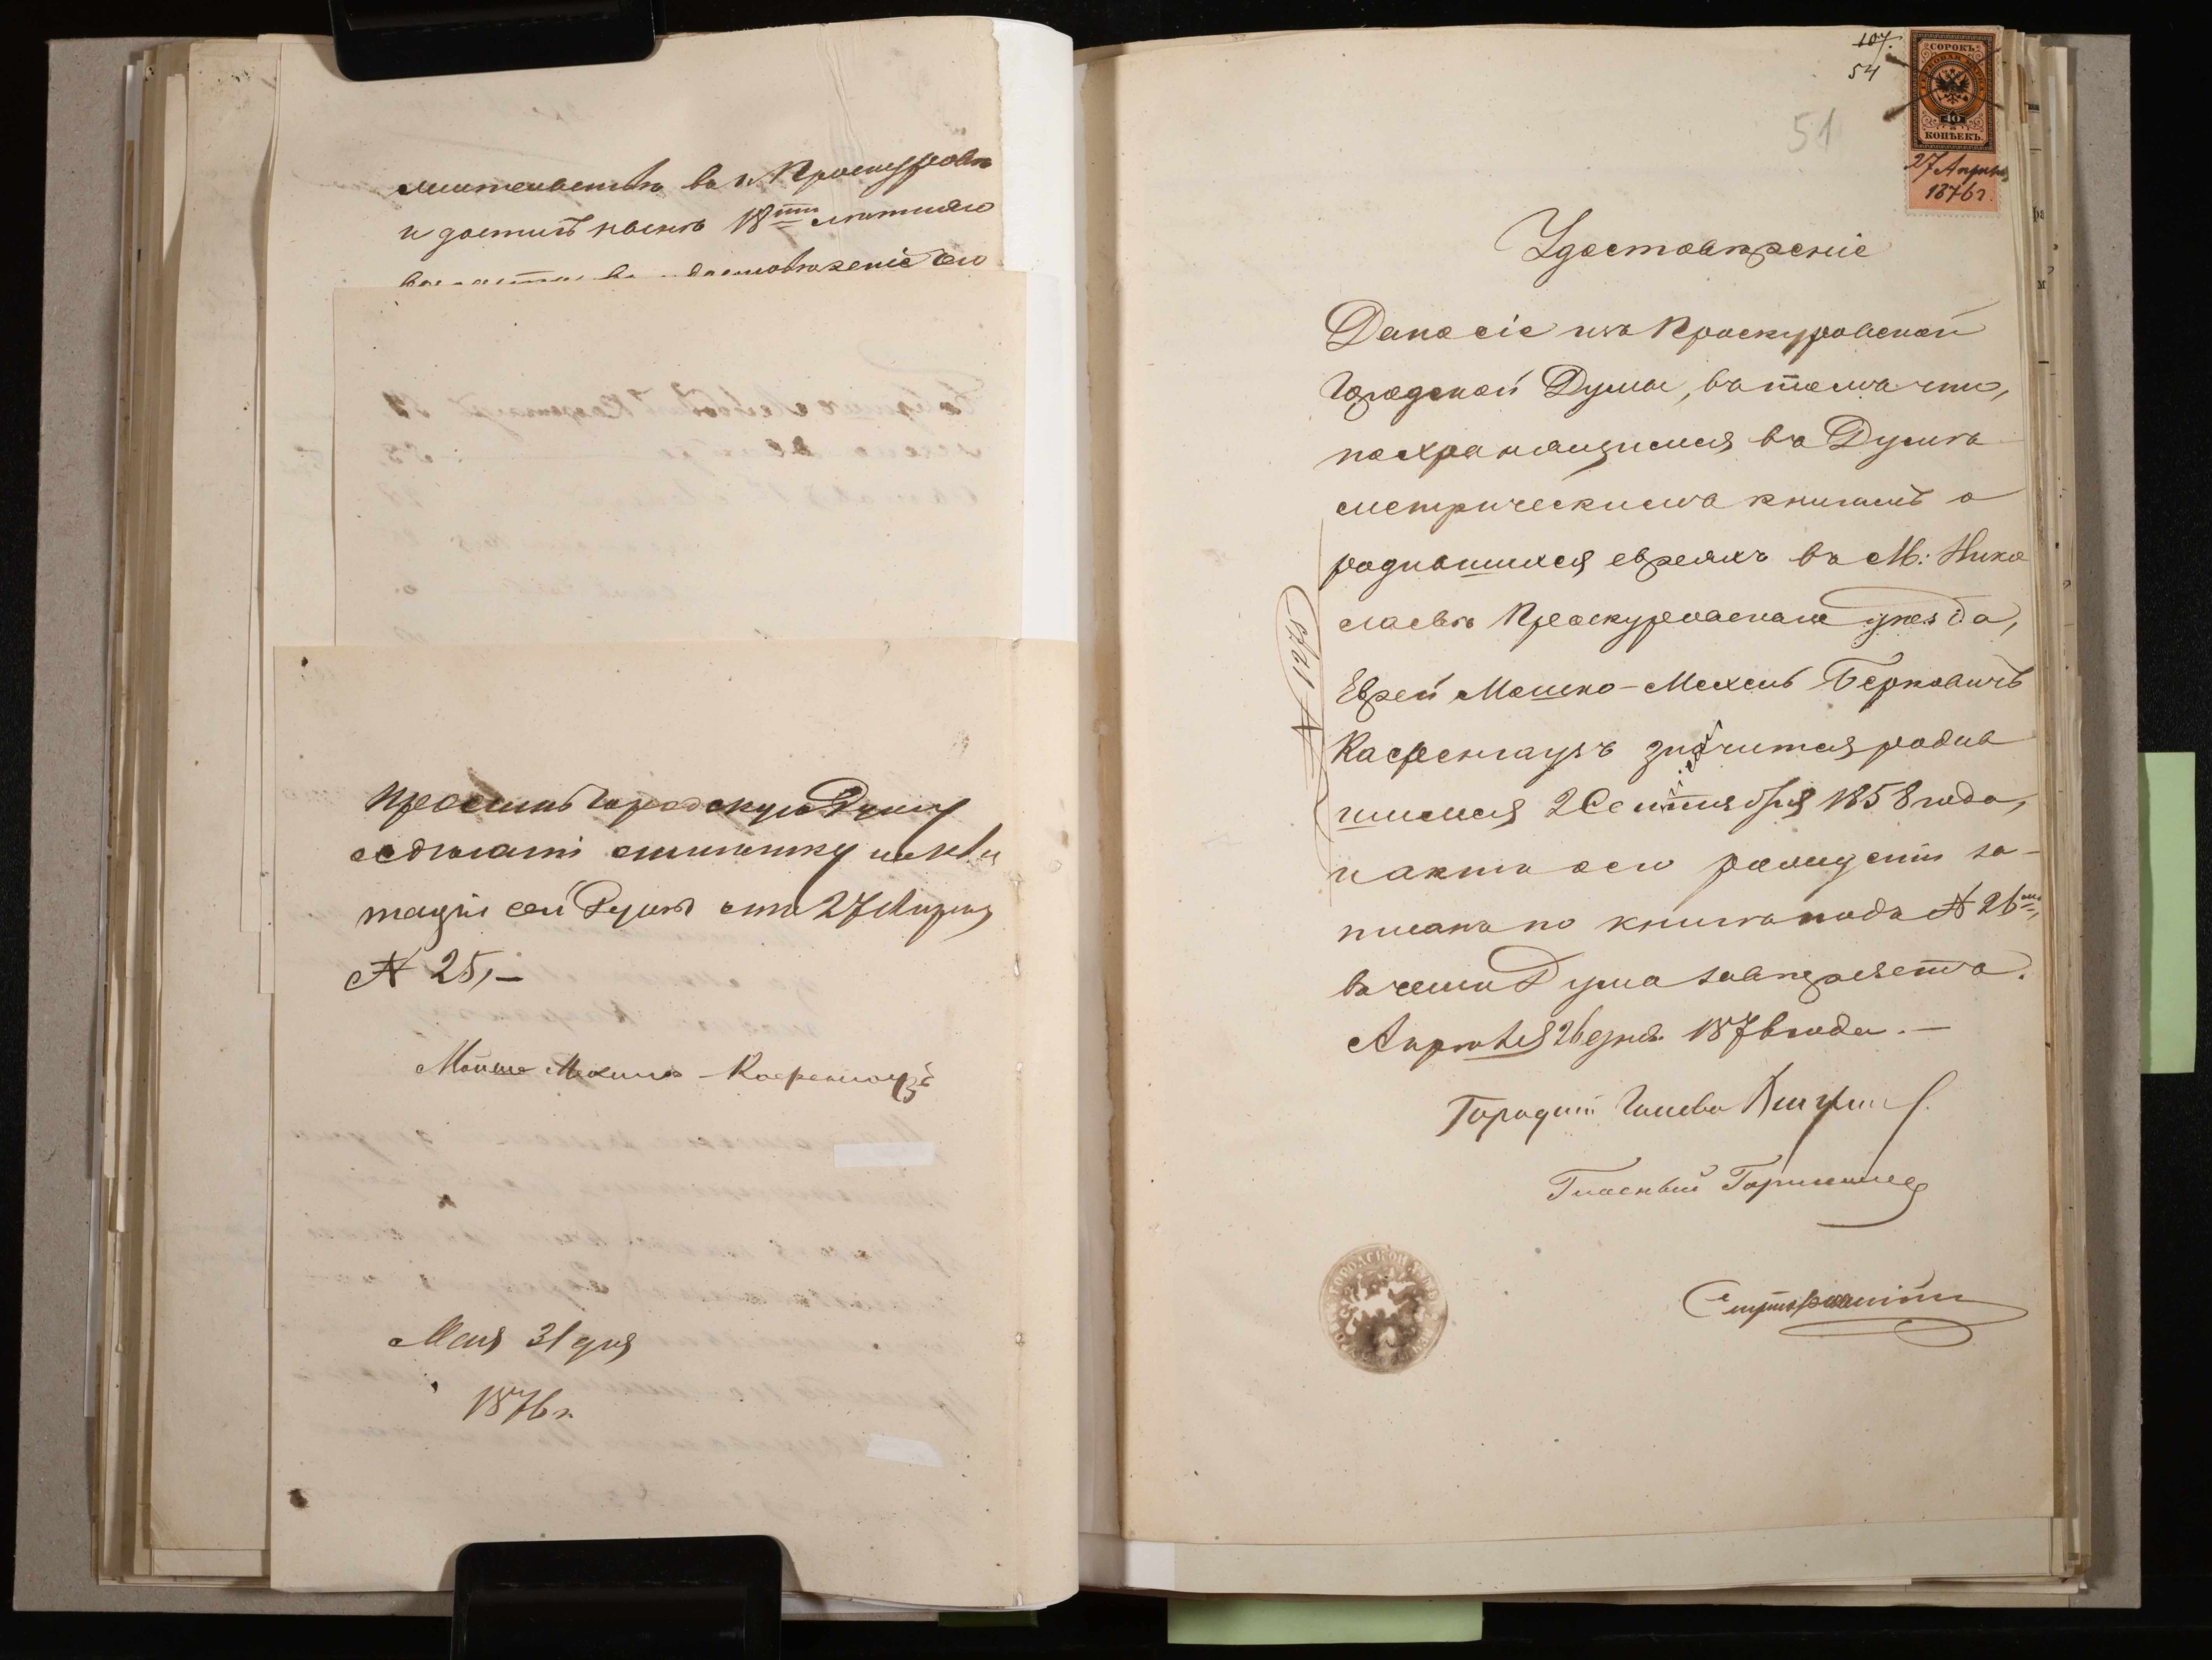 жительство въ г. Проскуровѣ
и достигъ нынѣ 18ти лѣтняго
Просимъ Городскую Думу
сдѣлать
сей Думы отъ 27 Апрѣля
№ 25,—
Мошко Мехель Касренгаузъ
Мая 31 дня
1876 г.
107.
54
51
СОРОКЪ
40
КОПѢЕКЪ.
27 Апрѣля
1876 г.
Удостовѣреніе
Дано сіе изъ Проскуровской
Городской Думы, въ томъ что,
по хранящимся въ Думѣ
метрическимъ книгамъ о
родившихся евреяхъ въ М: Нико
лаевѣ Проскуровскаго уѣзда,
Еврей Мошко-Мехель Берковичъ
Касренгаузъ значится родив
шимся 2 Сентября 1858 года,
и актъ о его рожденіи за-
писанъ по книгѣ подъ № 26мъ,
въ чемъ Дума завѣряетъ.
Апрѣля 26 дня 1876 года.—
Городской Голова
Гласный
№ 1285